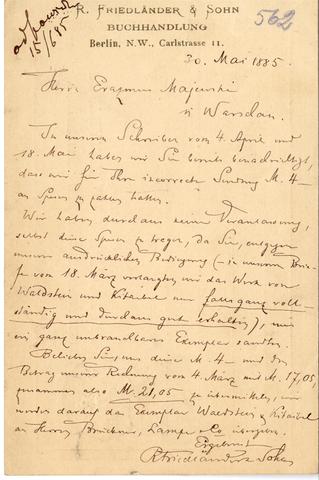 R. FRIEDLÄNDER & SOHN
562
BUCHHANDLUNG
15/6 85
Berlin, N.W., Carlstrasse 11.
30. Mai 1885.
Herrn Erazmus Majewski
in Warschau.
In unseren Schreiben vom 4. April und
18. Mai haben wir Sie bereits benachrichtigt,
dass wir für Ihre incorrecte Sendung M. 4–
an Spesen zu zahlen hatten.
Wir haben durchaus keine Veranlassung,
selbst diese Spesen zu tragen, da Sie, entgegen
unserer ausdrücklichen Bedingung (– in unserem Brie-
fe vom 18. März verlangten wir das Werk von
Waldstein und Kitaibel nur falls ganz voll-
ständig und durchaus gut erhalten), uns
ein ganz unbrauchbares Exemplar sandten.
Belieben Sie, uns diese M. 4– und den
Betrag unserer Rechnung vom 4. März mit M. 17,05,
zusammen also M. 21,05 zu übermitteln, wir
werden darauf das Exemplar Waldstein & Kitaibel
an Herren Brückner, Lampe & Co übergeben.
Ergebenst
R Friedländer & Sohn